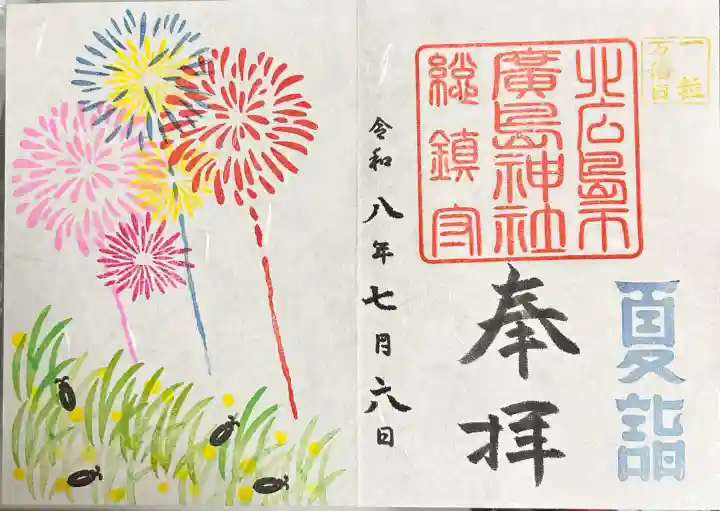 一粒
万倍日
北広島市
廣島神社
総鎮守
夏詣
奉拝
令和八年七月六日